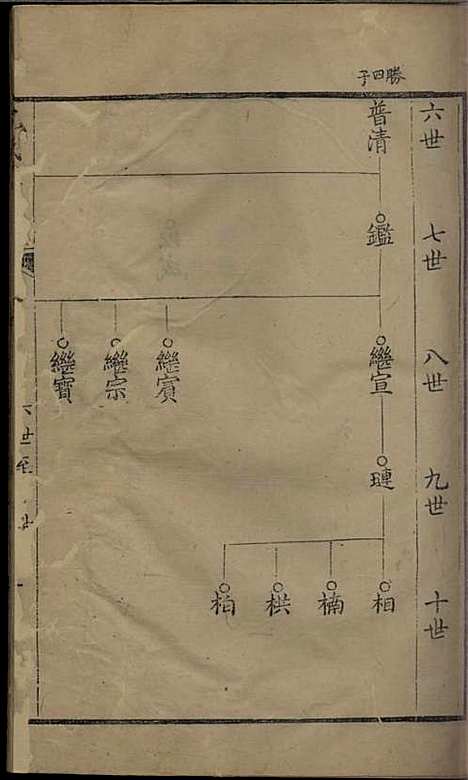 勝四子
六世
普清
七世
鑑
八世
繼宣
繼賔
繼宗
繼寶
九世
璉
十世
相
楠
栱
柏